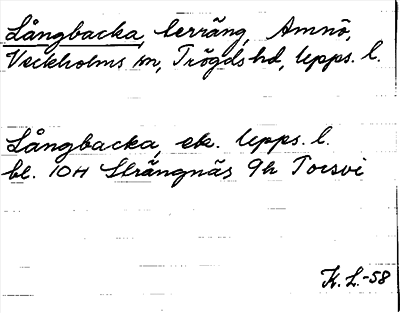 Långbacka, terräng, Amnö,
Veckholms sn, Trögds hd, Upps. l.
Långbacka, ek. Upps. l.
bl. 10H Strängnäs 9h Torsvi
K. L.-58